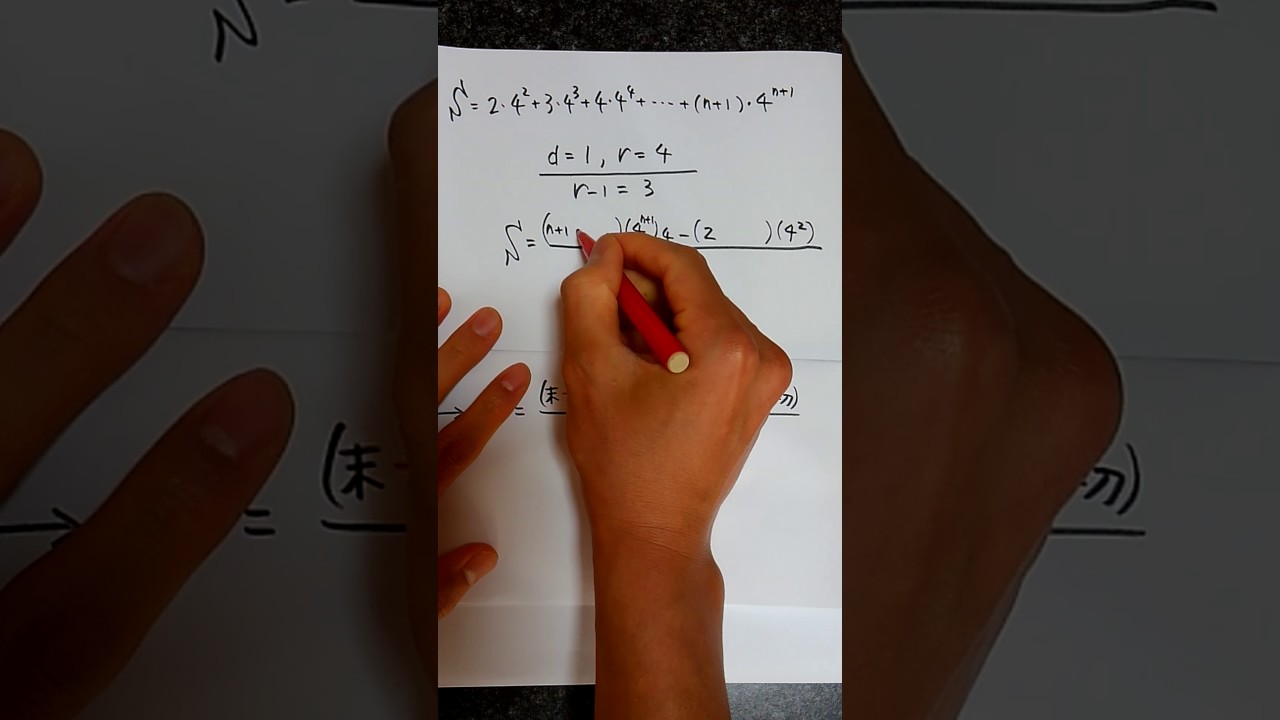 S = 2·4² + 3·4³ + 4·4⁴ + ··· + (n+1)·4ⁿ⁺¹
d = 1 , r = 4
r-1 = 3
S = (n+1 )(4ⁿ⁺¹)4 - (2 )(4²)
→ = (末- 初)